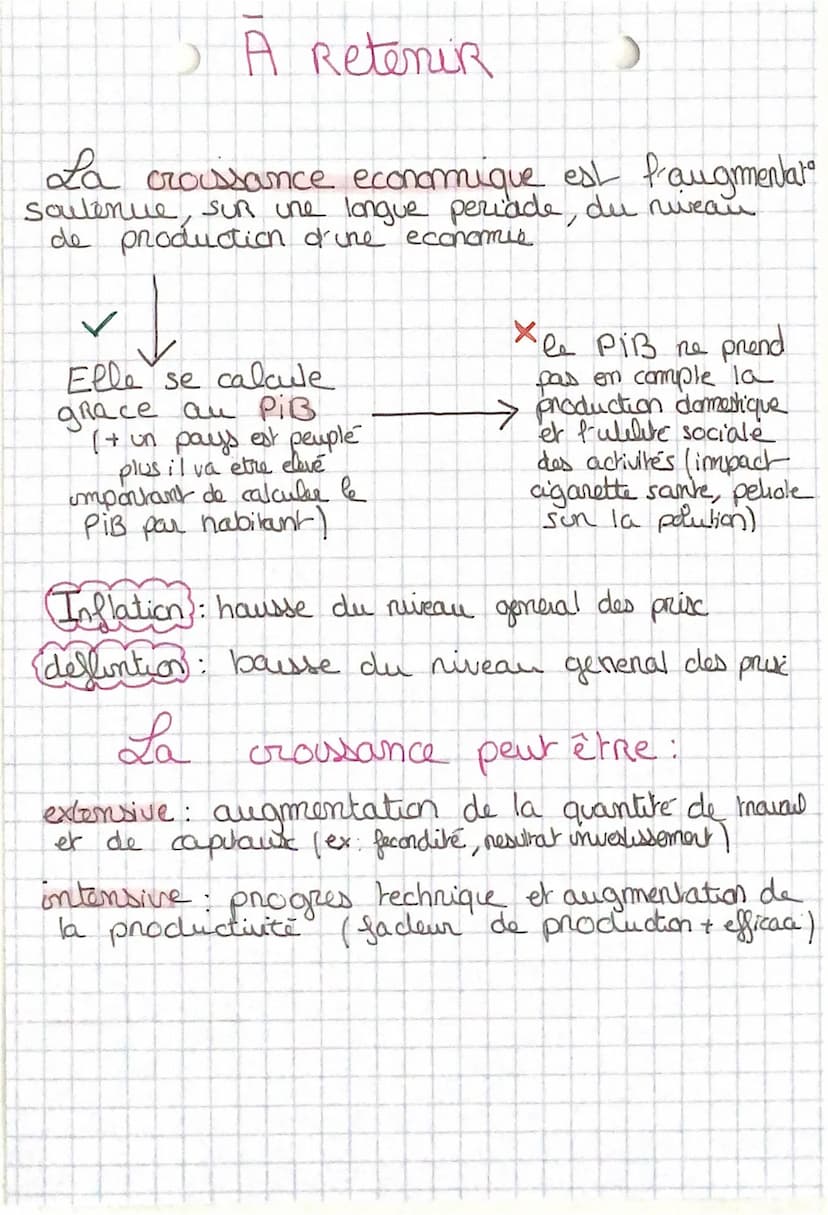 À RETENIR
La croissance economique est l'augmentat°
soutenue, sur une longue periode, du niveau
de production d'une economie
✓
Elle se calcule
grace au PiB
(+ un pays est peuplé
plus il va etre elevé
important de calculer le
PiB par habitant)
× le PiB ne prend
pas en compte la
production domestique
et l'utilité sociale
des activités (impact
cigarette sante, petrole
sur la polution)
Inflation : hausse du niveau general des prix
: baisse du niveau general des prix
La croissance peut être :
extensive : augmentation de la quantité de travail
et de capitaux (ex: fecondité, resultat investissement)
intensive : progres technique et augmentation de
la productivité (facteur de production + efficace)